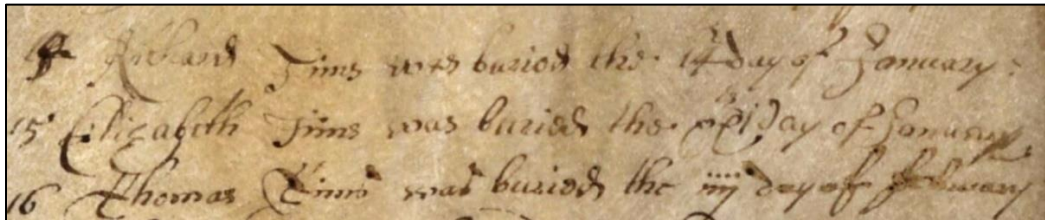 14 Richard Tims was buried the 14 day of January:
15 Elizabeth Tims was buried the xxi day of January
16 Thomas Tims was buried the iiij day of february